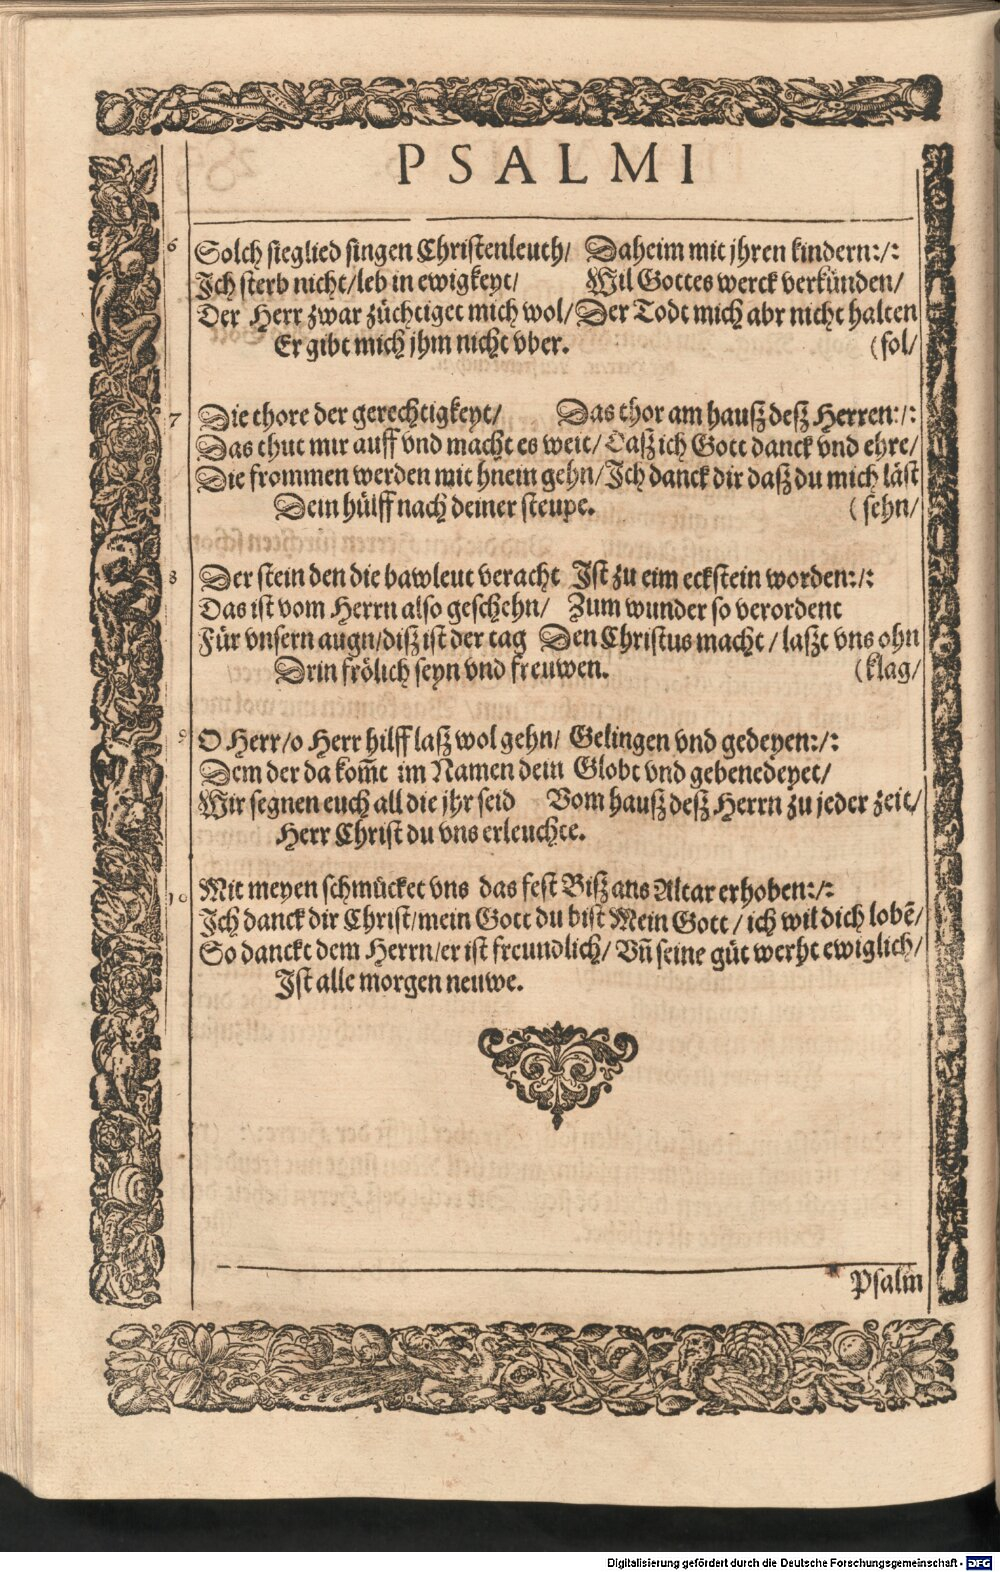 PSALMI
6 Solch sieglied singen Christenleuth/ Daheim mit jhren kindern:/:
Ich sterb nicht/leb in ewigkeyt/ Wil Gottes werck verkünden/
Der Herr zwar züchtiget mich wol/ Der Todt mich abr nicht halten
Er gibt mich jhm nicht vber. (sol/
7 Die thore der gerechtigkeyt/ Das thor am hauß deß Herren:/:
Das thut mir auff vnd macht es weit/ Daß ich Gott danck vnd ehre/
Die frommen werden mit hnein gehn/ Ich danck dir daß du mich läst
Dein hülff nach deiner steupe. (sehn/
8 Der stein den die bawleut veracht Ist zu eim eckstein worden:/:
Das ist vom Herrn also geschehn/ Zum wunder so verordent
Für vnsern augn/diß ist der tag Den Christus macht/ laßt vns ohn
Drin frölich seyn vnd freuwen. (klag/
9 O Herr/o Herr hilff laß wol gehn/ Gelingen vnd gedeyen:/:
Dem der da kom̃t im Namen dein Globt vnd gebenedeyet/
Wir segnen euch all die jhr seid Vom hauß deß Herrn zu jeder zeit/
Herr Christ du vns erleuchte.
10 Mit meyen schmücket vns das fest Biß ans Altar erhoben:/:
Ich danck dir Christ/mein Gott du bist Mein Gott/ ich wil dich lobẽ/
So danckt dem Herrn/er ist freundlich/ Vñ seine güt werht ewiglich/
Ist alle morgen neuwe.
Psalm
Digitalisierung gefördert durch die Deutsche Forschungsgemeinschaft - DFG